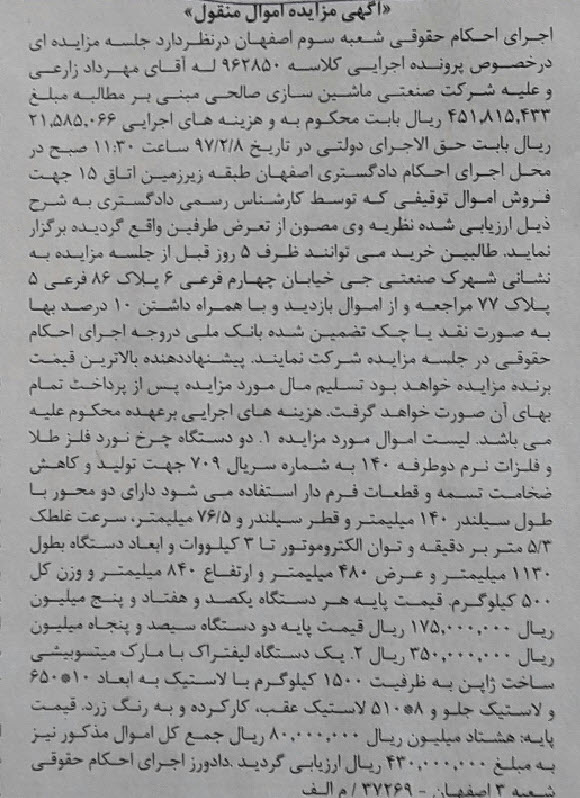 «آگهی مزایده اموال منقول»
اجرای احکام حقوقی شعبه سوم اصفهان درنظردارد جلسه مزایده ای
درخصوص پرونده اجرایی کلاسه ۹۶۲۸۵۰ له آقای مهرداد زارعی
و علیه شرکت صنعتی ماشین سازی صالحی مبنی بر مطالبه مبلغ
۴۵۱,۸۱۵,۴۳۳ ریال بابت محکوم به و هزینه های اجرایی ۲۱,۵۸۵,۰۶۶
ریال بابت حق الاجرای دولتی در تاریخ ۹۷/۲/۸ ساعت ۱۱:۳۰ صبح در
محل اجرای احکام دادگستری اصفهان طبقه زیرزمین اتاق ۱۵ جهت
فروش اموال توقیفی که توسط کارشناس رسمی دادگستری به شرح
ذیل ارزیابی شده نظریه وی مصون از تعرض طرفین واقع گردیده برگزار
نماید. طالبین خرید می توانند ظرف ۵ روز قبل از جلسه مزایده به
نشانی شهرک صنعتی جی خیابان چهارم فرعی ۶ پلاک ۸۶ فرعی ۵
پلاک ۷۷ مراجعه و از اموال بازدید و با همراه داشتن ۱۰ درصد بها
به صورت نقد یا چک تضمین شده بانک ملی دروجه اجرای احکام
حقوقی در جلسه مزایده شرکت نمایند. پیشنهاددهنده بالاترین قیمت
برنده مزایده خواهد بود تسلیم مال مورد مزایده پس از پرداخت تمام
بهای آن صورت خواهد گرفت. هزینه های اجرایی برعهده محکوم علیه
می باشد. لیست اموال مورد مزایده ۱. دو دستگاه چرخ نورد فلز طلا
و فلزات نرم دوطرفه ۱۴۰ به شماره سریال ۷۰۹ جهت تولید و کاهش
ضخامت تسمه و قطعات فرم دار استفاده می شود دارای دو محور با
طول سیلندر ۱۴۰ میلیمتر و قطر سیلندر و ۷۶/۵ میلیمتر، سرعت غلطک
۵/۳ متر بر دقیقه و توان الکتروموتور تا ۳ کیلووات و ابعاد دستگاه بطول
۱۱۳۰ میلیمتر و عرض ۴۸۰ میلیمتر و ارتفاع ۸۴۰ میلیمتر و وزن کل
۵۰۰ کیلوگرم. قیمت پایه هر دستگاه یکصد و هفتاد و پنج میلیون
ریال ۱۷۵,۰۰۰,۰۰۰ ریال قیمت پایه دو دستگاه سیصد و پنجاه میلیون
ریال ۳۵۰,۰۰۰,۰۰۰ ریال ۲. یک دستگاه لیفتراک با مارک میتسوبیشی
ساخت ژاپن به ظرفیت ۱۵۰۰ کیلوگرم با لاستیک به ابعاد ۱۰*۶۵۰
و لاستیک جلو و ۸*۵۱۰ لاستیک عقب، کارکرده و به رنگ زرد. قیمت
پایه: هشتاد میلیون ریال ۸۰,۰۰۰,۰۰۰ ریال جمع کل اموال مذکور نیز
به مبلغ ۴۳۰,۰۰۰,۰۰۰ ریال ارزیابی گردید .دادورز اجرای احکام حقوقی
شعبه ۳ اصفهان - ۳۷۲۶۹ / م الف